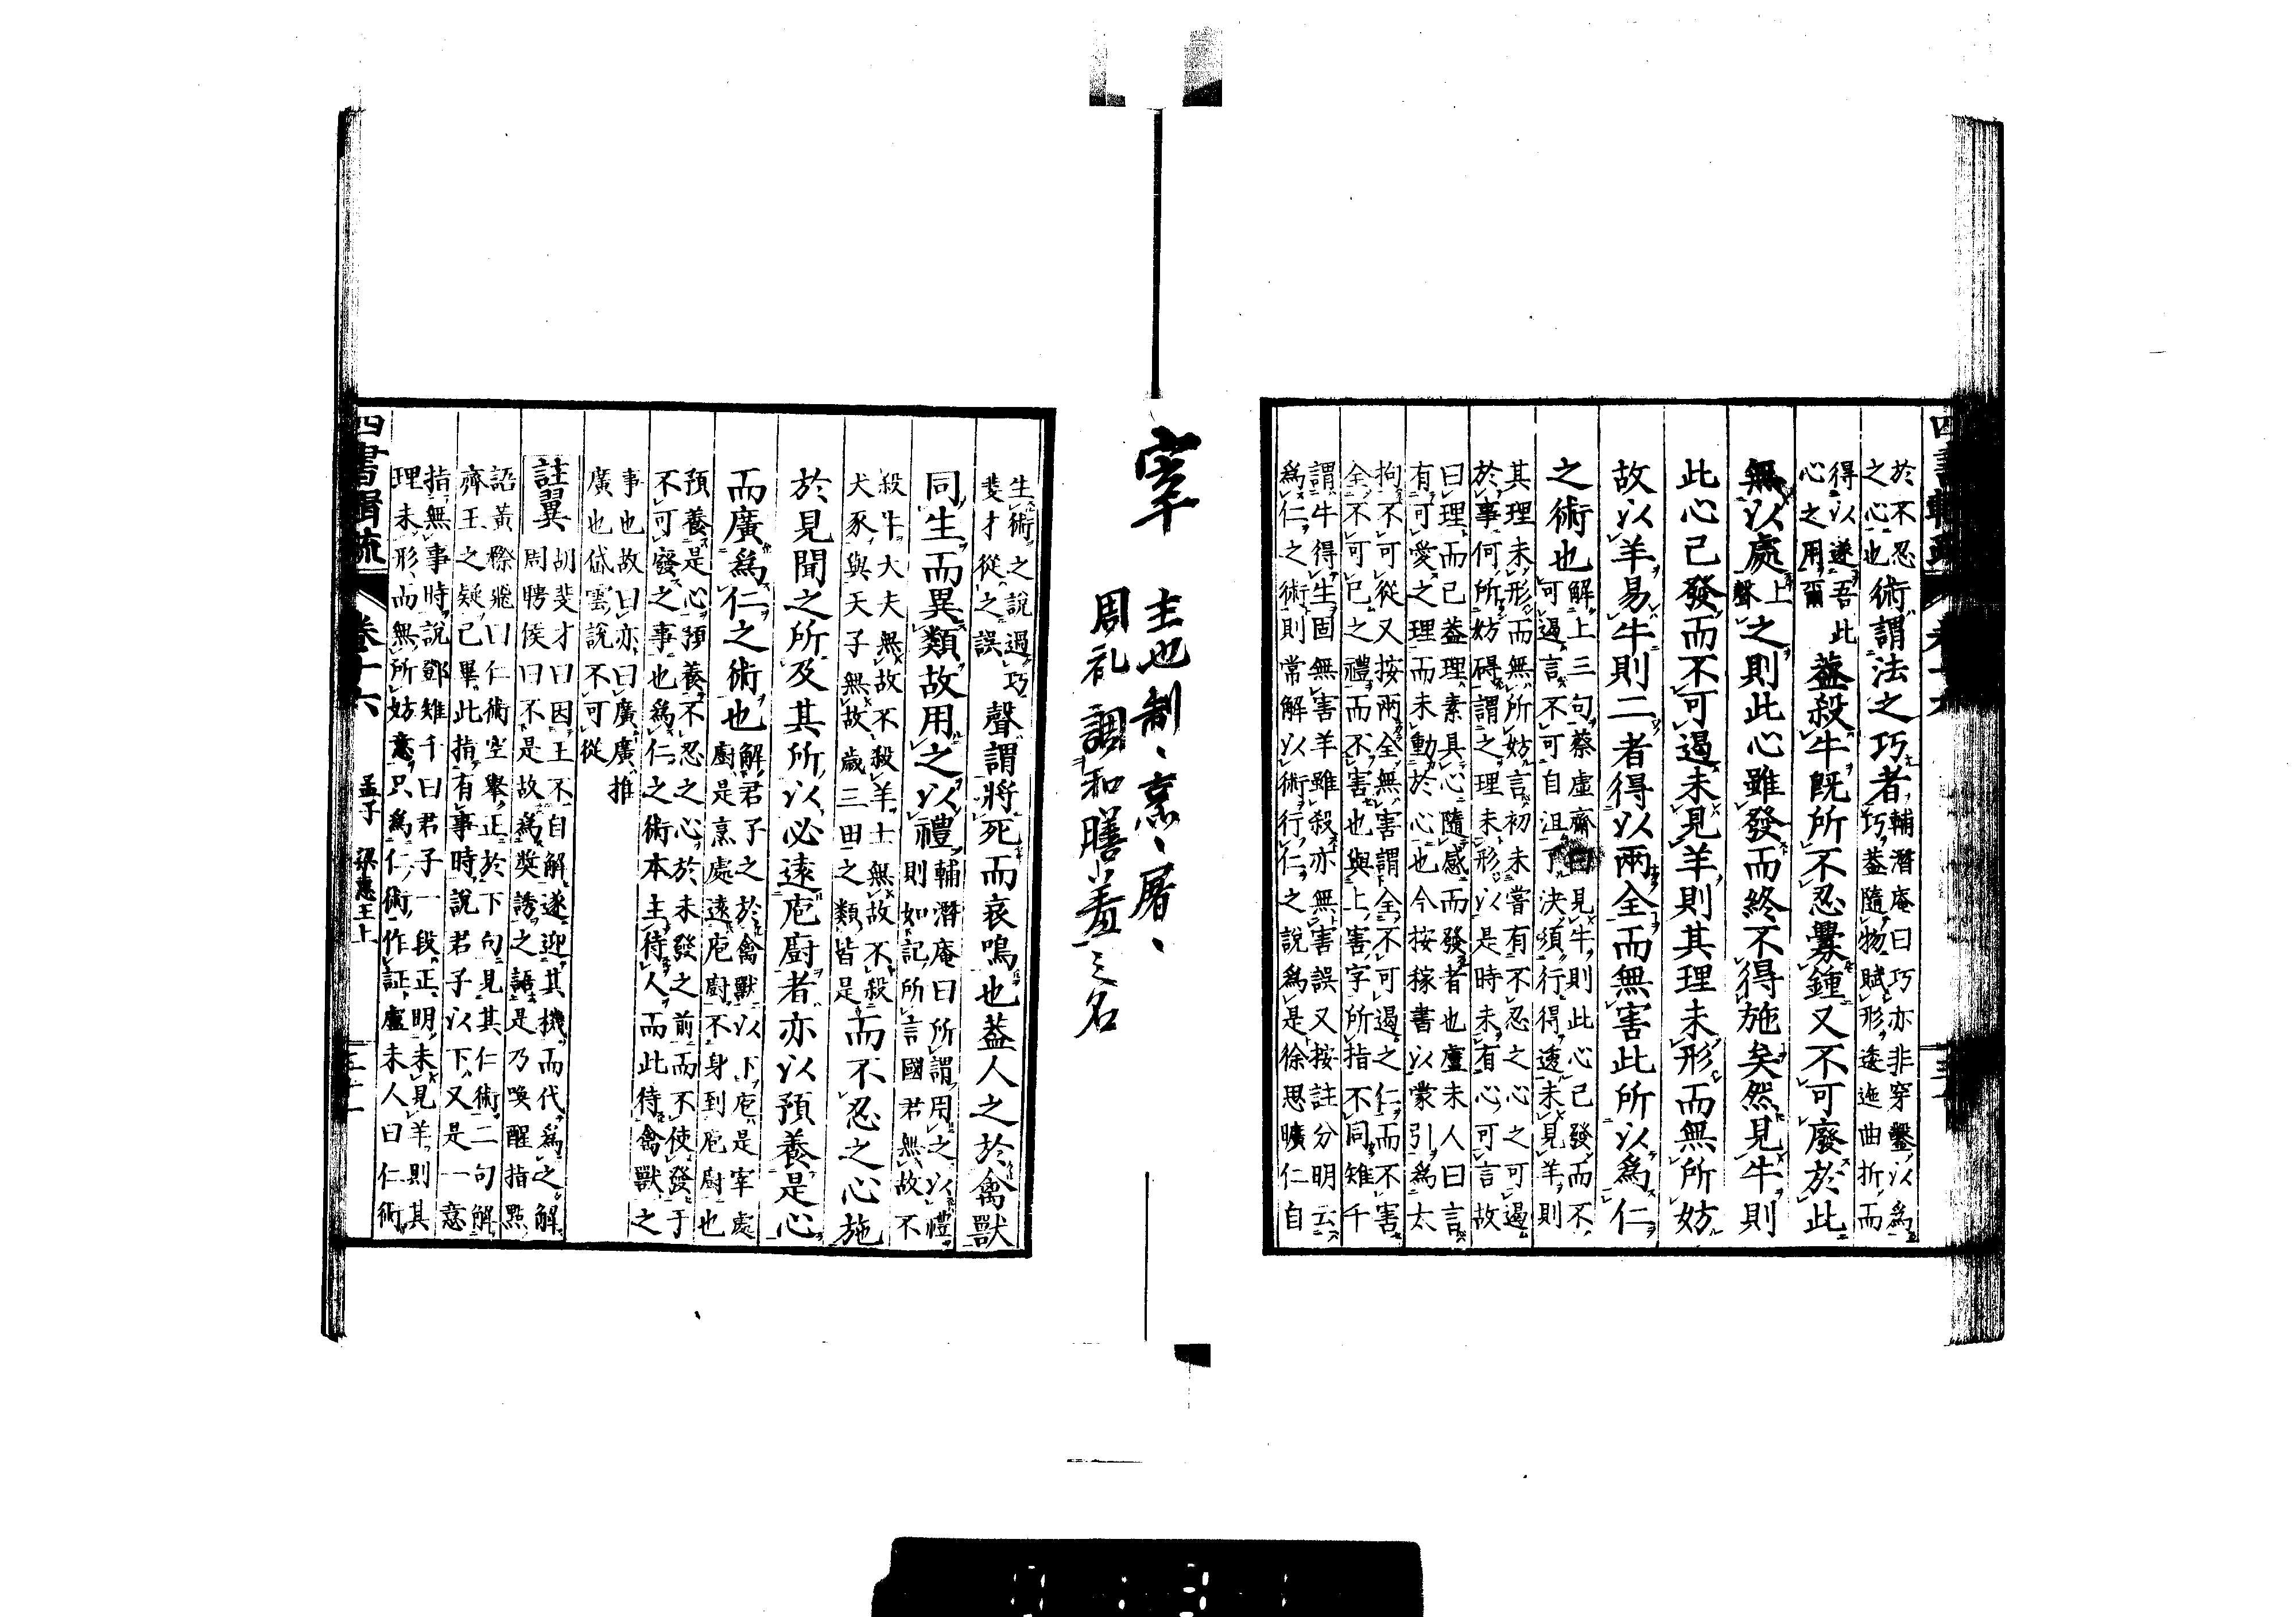 於不忍
之心也
術謂法之巧者
輔潛庵曰巧亦非穿鑿以爲
巧蓋隨物賦形逶迤曲折而
得以遂吾此
心之用爾
蓋殺牛既所不忍釁鍾又不可廢於此
無以處
上
聲
之則此心雖發而終不得施矣然見牛則
此心已發而不可遏未見羊則其理未形而無所妨
故以羊易牛則二者得以兩全而無害此所以爲仁
之術也
解上三句蔡虛齋曰見牛則此心已發而不
可遏言不可自沮了決須行得透未見羊則
其理未形而無所妨言初未嘗有不忍之心之可遏
於事何所妨碍謂之理未形以是時未有心可言故
曰理而已蓋理素具心隨感而發者也盧未人曰言
有可愛之理而未動於心也今按稼書以蒙引爲太
拘不可從又按兩全無害謂全不可遏之仁而不害
全不可已之禮而不害也與上害字所指不同雉千
謂牛得生固無害羊雖殺亦無害誤又按註分明云
爲仁之術則常解以術行仁之說爲是徐思曠仁自
宰
主也制、烹、屠、
周礼調和膳羞之名
生術之說過巧
斐才從之誤
聲謂將死而哀鳴也蓋人之於禽獸
同生而異類故用之以禮
輔潛庵曰所謂用之以禮
則如記所言國君無故不
殺牛大夫無故不殺羊士無故不殺
犬豕與天子無故歲三田之類皆是
而不忍之心施
於見聞之所及其所以必遠庖廚者亦以預養是心
而廣爲仁之術也
解君子之於禽獸以下庖是宰處
廚是烹處遠庖廚不身到庖廚也
預養是心預養不忍之心於未發之前而不使發于
不可發之事也爲仁之術本主待人而此待禽獸之
事也故曰亦曰廣廣推
廣也岱雲說不可從
註翼
胡斐才曰因王不自解遂迎其機而代爲之解
周聘侯曰不是故爲獎誘之語是乃喚醒指點
語黃際飛曰仁術空舉正於下句見其仁術二句解
齊王之疑已畢此指有事時說君子以下又是一意
指無事時說鄧雉千曰君子一段正明未見羊則其
理未形而無所妨意只爲仁術作証盧未人曰仁術
四書輯疏
卷十六
孟子
梁惠王上